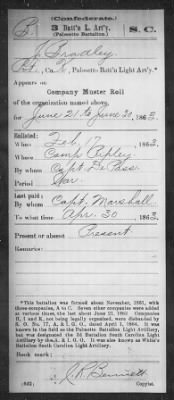 (Confederate.)
B 3 Batt'n L. Art'y. S. C.
(Palmetto Battalion.)
J. Bradley
Pvt, Co. , Palmetto Batt'n Light Art'y.
Appears on
Company Muster Roll
of the organization named above,
for June 21 to June 30, 1863.
Enlisted:
When Feb. 7, 186
Where Camp Ripley
By whom Capt. De Pass
Period War
Last paid:
By whom Capt. Marshall
To what time Apr. 30, 1863.
Present or absent Present
Remarks:
*This battalion was formed about November, 1861, with
three companies, A to C. Seven other companies were added
at various times, the last about June 21, 1863. Companies
H, I and K, not being legally organized, were disbanded by
S. O. No. 77, A. & I. G. O., dated April 1, 1864. It was
known in the field as the Palmetto Battalion Light Artillery,
but was designated the 3d Battalion South Carolina Light
Artillery by the A. & I. G. O. It was also known as White's
Battalion South Carolina Light Artillery.
Book mark:
(642) J. R. Bennett
Copyist.